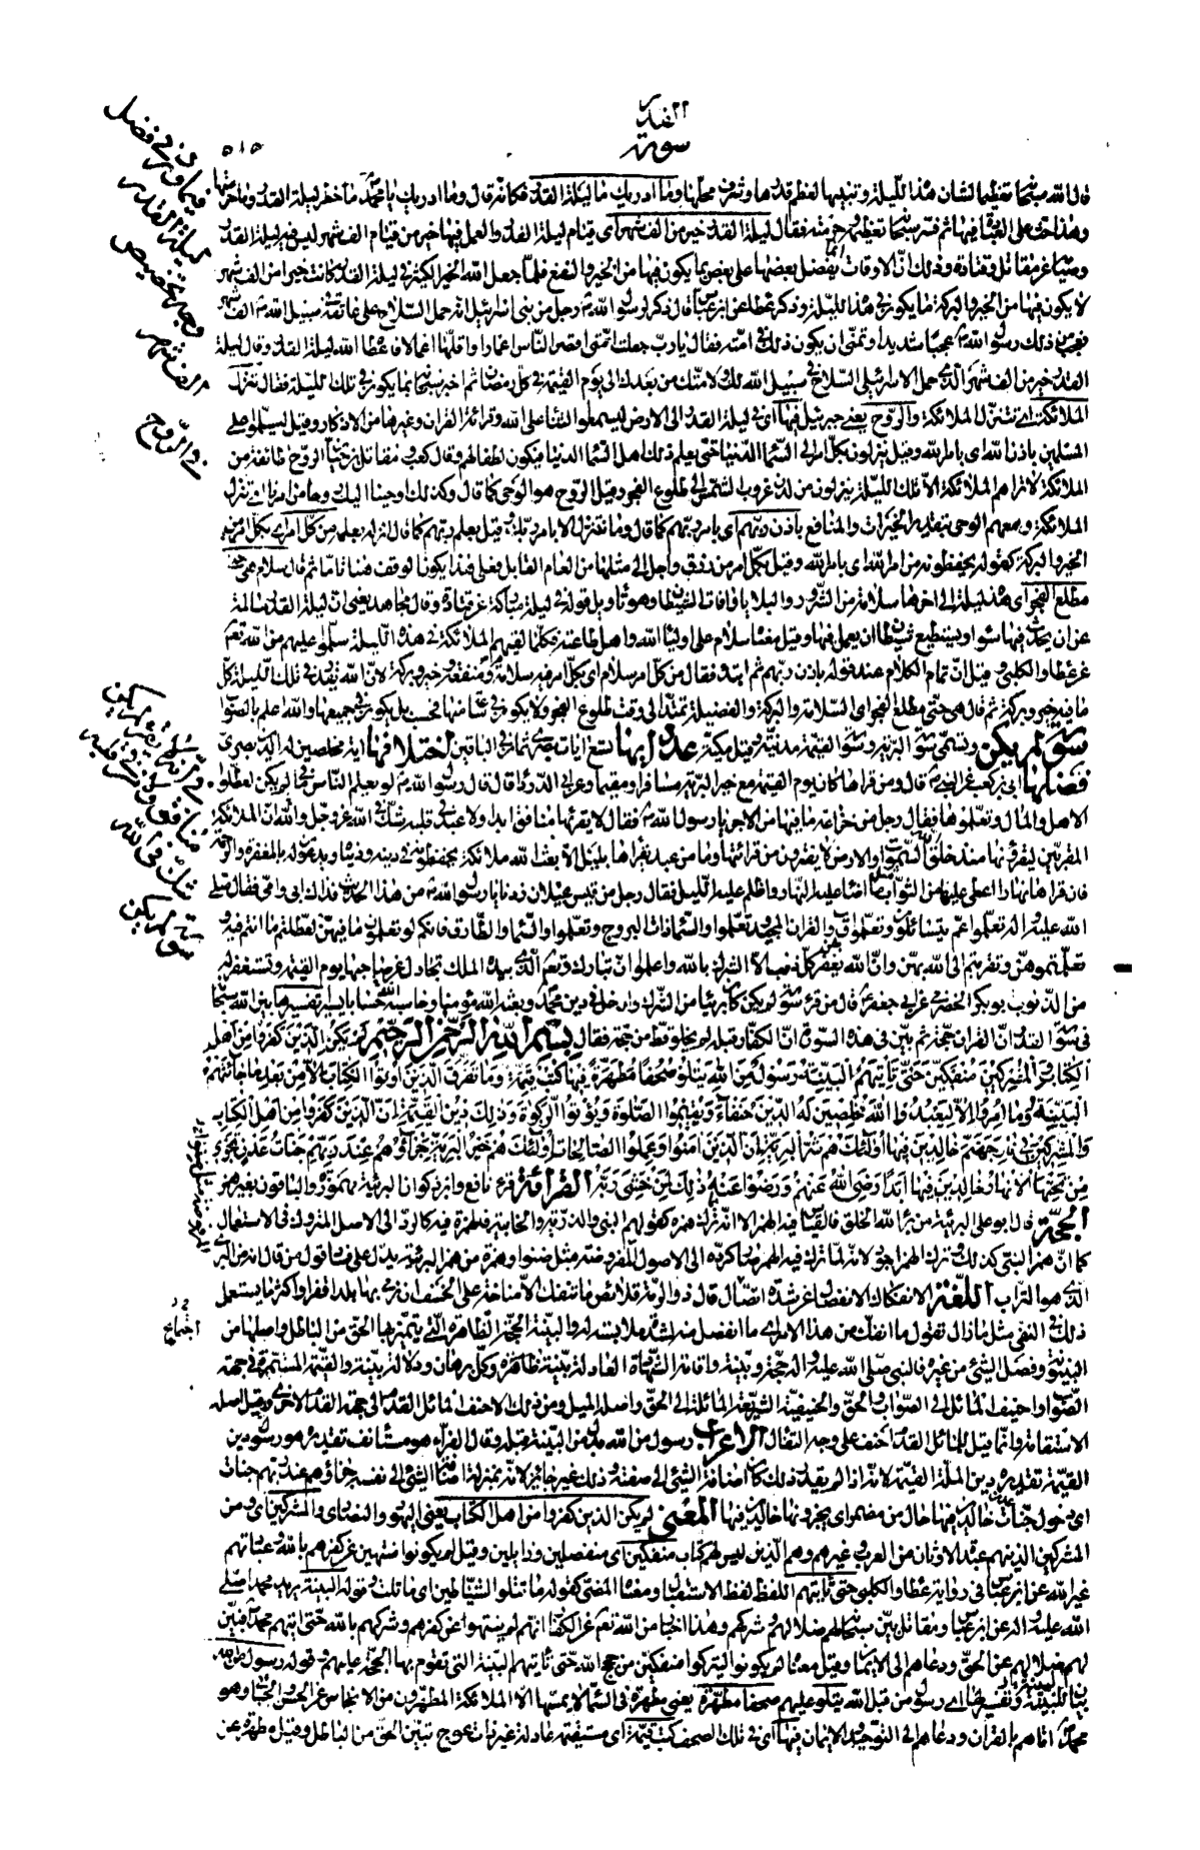 القدر
سورة
٥١٥
قال الله سبحانه تعظيما لشأن هذه الليلة وتنبيها لعظم قدرها وشرف محلها وما ادريك ما ليلة القدر فكانه قال وما ادريك يا محمد ما خطر ليلة القدر وما حرمتها
وهذا حث على العبادة فيها ثم فسر سبحانه تعظيمه وحرمته فقال ليلة القدر خير من الف شهر اى قيام ليلة القدر والعمل فيها خير من قيام الف شهر ليس فيه ليلة القدر
وصيامه عن مقاتل وقتادة وذلك ان الاوقات انما يفضل بعضها على بعض بما يكون فيها من الخير والنفع فلما جعل الله الخير الكثير فى ليلة القدر كانت خيرا من الف شهر
لا يكون فيها من الخير والبركة ما يكون فى هذه الليلة وذكر عطا عن ابن عباس قال ذكر لرسول الله ص رجل من بنى اسرائيل انه حمل السلاح على عاتقه فى سبيل الله تع الف شهر
فعجب من ذلك رسول الله ص عجبا شديدا وتمنى ان يكون ذلك فى امته فقال يا رب جعلت امتى اقصر الناس اعمارا واقلها اعمالا فاعطاه الله ليلة القدر وقال ليلة
القدر خير من الف شهر الذى حمل الاسرائيلى السلاح فى سبيل الله لك ولامتك من بعدك الى يوم القيمة فى كل رمضان ثم اخبر سبحانه بما يكون فى تلك الليلة فقال تنزل
الملائكة اى تتنزل الملائكة والروح يعنى جبرئيل فيها اى فى ليلة القدر الى الارض ليسمعوا الثناء على الله وقرائة القران وغيرها من الاذكار وقيل ليسلموا على
المسلمين باذن الله اى بامر الله وقيل ينزلون بكل امر الى السماء الدنيا حتى يعلم ذلك اهل السماء الدنيا فيكون لطفا لهم وقال كعب ومقاتل بن حيان الروح طائفة من
الملائكة لا تراهم الملائكة الا تلك الليلة ينزلون من لدن غروب الشمس الى طلوع الفجر وقيل الروح هو الوحى كما قال وكذلك اوحينا اليك روحا من امرنا اى تنزل
الملائكة ومعهم الوحى بتقدير الخيرات والمنافع باذن ربهم اى بامر ربهم كما قال وما نتنزل الا بامر ربك وقيل بعلم ربهم كما قال انزله بعلمه من كل امر اى بكل امر من
الخير والبركة كقوله يحفظونه من امر الله اى بامر الله وقيل بكل امر من رزق واجل الى مثلها من العام القابل فعلى هذا يكون الوقف هنا تاما ثم قال سلام هى حتى
مطلع الفجر اى هذه الليلة الى اخرها سلامة من الشرور والبلايا وافات الشيطان وهو تاويل قوله فى ليلة مباركة عن قتادة وقال مجاهد يعنى ان ليلة القدر سالمة
عن ان يحدث فيها سوء او يستطيع شيطان ان يعمل فيها وقيل معناه سلام على اولياء الله واهل طاعته فكلما لقيهم الملائكة فى هذه الليلة سلموا عليهم من الله تع
عن عطا والكلبى وقيل ان تمام الكلام عند قوله باذن ربهم ثم ابتدء فقال من كل امر سلام اى بكل امر فيه سلامة ومنفعة وخير وبركة لان الله يقدر فى تلك الليلة كل
ما فيه خير وبركة ثم قال هى حتى مطلع الفجر اى السلامة والبركة والفضيلة تمتد الى وقت طلوع الفجر ولا يكون فى ساعة منها فحسب بل يكون فى جميعها والله اعلم بالصواب
سورة لم يكن وتسمى سورة البرية وسورة القيمة مدنية وقيل مكية عدد ايها تسع ايات بصرى ثمان فى الباقين اختلافها اية مخلصين له الدين بصرى
فضلها ابى بن كعب عن النبى ص قال ومن قراها كان يوم القيمة مع خير البرية مسافرا ومقيما وعن ابى الدرداء قال قال رسول الله ص لو يعلم الناس ما فى لم يكن لعطلوا
الاهل والمال وتعلموها فقال رجل من خزاعة ما فيها من الاجر يا رسول الله ص فقال لا يقرئها منافق ابدا ولا عبد فى قلبه شك فى الله عز وجل والله ان الملائكة
المقربين ليقرؤنها منذ خلق الله السموات والارض لا يفترون من قرائتها وما من عبد يقراها بليل الا بعث الله ملائكة يحفظونه فى دينه ودنياه ويدعون له بالمغفرة والرحمة
فان قراها نهارا اعطى عليها من الثواب مثل ما اضاء عليه النهار واظلم عليه الليل فقال رجل من قيس عيلان زدنا يا رسول الله ص من هذا الحديث فداك ابى وامى فقال صلى
الله عليه واله تعلموا عم يتسائلون وتعلموا ق والقران المجيد وتعلموا والسماء ذات البروج وتعلموا والسماء والطارق فانكم لو تعلمون ما فيهن لعطلتم ما انتم فيه و
تعلمتموهن وتقربتم الى الله بهن وان الله يغفر بهن كل ذنب الا الشرك بالله واعلموا ان تبارك الذى بيده الملك تجادل عن صاحبها يوم القيمة وتستغفر له
من الذنوب ابو بكر الحضرمى عن ابى جعفر ع قال من قرء سورة لم يكن كان بريئا من الشرك وادخل فى دين محمد ص وبعثه الله مؤمنا وحاسبه الله حسابا يسيرا تفسيرها بين الله سبحانه
فى سورة القدر ان القران حجة ثم بين فى هذه السورة ان الكفار قبله لم يخلوا قط من حجة فقال بسم الله الرحمن الرحيم لم يكن الذين كفروا من اهل
الكتاب والمشركين منفكين حتى تاتيهم البينة رسول من الله يتلو صحفا مطهرة فيها كتب قيمة وما تفرق الذين اوتوا الكتاب الا من بعد ما جائتهم
البينة وما امروا الا ليعبدوا الله مخلصين له الدين حنفاء ويقيموا الصلوة ويؤتوا الزكوة وذلك دين القيمة ان الذين كفروا من اهل الكتاب
والمشركين فى نار جهنم خالدين فيها اولئك هم شر البرية ان الذين امنوا وعملوا الصالحات اولئك هم خير البرية جزاؤهم عند ربهم جنات عدن تجرى
من تحتها الانهار خالدين فيها ابدا رضى الله عنهم ورضوا عنه ذلك لمن خشى ربه القرائة قرء نافع وابن ذكوان البريئة مهموزة والباقون بغير همز
الحجة قال ابو على البريئة من برأ الله الخلق فالقياس فيه الهمز الا انه ترك همزه كقولهم النبى والذرية والخابية فالهمزة فيه كالرد الى الاصل المتروك فى الاستعمال
كما ان همز النبى كذلك وترك الهمز اجود لانه لما ترك فيه الهمز صار كرده الى الاصول المرفوضة مثل ضننوا وهمزة من همز البرية يدل على فساد قول من قال انه من البرى
الذى هو التراب اللغة الانفكاك الانفصال عن شدة اتصال قال ذو الرمة قلائص ما تنفك الا مناخة على الخسف او نرمى بها بلدا قفرا واكثر ما يستعمل
ذلك فى النفى مثل ما زال تقول ما انفك من هذا الامر اى ما انفصل منه لشدة ملابسته له والبينة الحجة الظاهرة التى يتميز بها الحق من الباطل واصلها من
البينونة وفصل الشئ من غيره فالنبى صلى الله عليه واله حجة وبينة واقامة الشهادة العادلة بينة ظاهرة وكل برهان ودلالة بينة والقيمة المستمرة فى جهة
الصواب والحنيف المائل الى الصواب والحق والحنيفية الشريعة المائلة الى الحق واصله الميل ومن ذلك الاحنف المائل القدم الى جهة القدم الاخرى وقيل اصله
الاستقامة وانما قيل للمائل القدم احنف على وجه التفأل الاعراب رسول من الله بدل من البينة قبله وقال الفراء هو مستانف تقديره هو رسول ودين
القيمة تقديره دين الملة القيمة لانه اذا لم يقدر ذلك كان اضافة الشئ الى صفته وذلك غير جائز لانه بمنزلة اضافة الشئ الى نفسه جزاؤهم عند ربهم جنات
اى دخول جنات خالدين فيها حال من مضمر اى يجزونها خالدين فيها المعنى لم يكن الذين كفروا من اهل الكتاب يعنى اليهود والنصارى والمشركين اى ومن
المشركين الذين هم عبدة الاوثان من العرب وغيرهم وهم الذين ليس لهم كتاب منفكين اى منفصلين وزايلين وقيل لم يكونوا منتهين عن كفرهم بالله وعبادتهم
غير الله عن ابن عباس فى رواية عطا والكلبى حتى تاتيهم اللفظ لفظ الاستقبال ومعناه المضى كقوله ما تتلوا الشياطين اى ما تلت وقوله البينة يريد محمدا صلى
الله عليه واله عن ابن عباس ومقاتل بين سبحانه لهم ضلالهم وشركهم وهذا اخبار من الله تع عن الكفار انهم لم ينتهوا عن كفرهم وشركهم بالله حتى اتيهم محمد ص فبين
لهم ضلالهم عن الحق ودعاهم الى الايمان وقيل معناه لم يكونوا ليتركوا منفكين من حجج الله حتى تاتيهم البينة التى تقوم بها الحجة عليهم وقوله رسول من الله
بيان للبينة وتفسير لها اى رسول من قبل الله يتلو عليهم صحفا مطهرة يعنى مطهرة فى السماء لا يمسها الا الملائكة المطهرون من الانجاس عن الحسن والجبائى وهو
محمد ص اتاهم بالقران ودعاهم الى التوحيد والايمان فيها اى فى تلك الصحف كتب قيمة اى مستقيمة عادلة غير ذات عوج تبين الحق من الباطل وقيل مطهرة عن